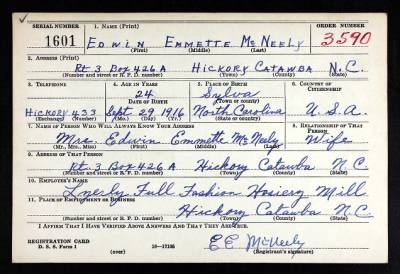 SERIAL NUMBER 1. NAME (Print) ORDER NUMBER
1601 EDWIN EMMETTE McNEELY 3590
(First) (Middle) (Last)
2. ADDRESS (Print)
Rt. 3 Box 426A HICKORY CATAWBA N.C.
(Number and street or R. F. D. number) (Town) (County) (State)
3. TELEPHONE 4. AGE IN YEARS 5. PLACE OF BIRTH 6. COUNTRY OF CITIZENSHIP
24 Sylva
DATE OF BIRTH (Town or county)
HICKORY 433 Sept. 29 1916 North Carolina U.S.A.
(Exchange) (Number) (Mo.) (Day) (Yr.) (State or country)
7. NAME OF PERSON WHO WILL ALWAYS KNOW YOUR ADDRESS 8. RELATIONSHIP OF THAT PERSON
Mrs. Edwin Emmette McNeely Wife
(Mr., Mrs., Miss) (First) (Middle) (Last)
9. ADDRESS OF THAT PERSON
Rt. 3 Box 426A Hickory Catawba N.C.
(Number and street or R. F. D. number) (Town) (County) (State)
10. EMPLOYER'S NAME
Full Fashion Hosiery Mill
11. PLACE OF EMPLOYMENT OR BUSINESS
Hickory Catawba N.C.
(Number and street or R. F. D. number) (Town) (County) (State)
I AFFIRM THAT I HAVE VERIFIED ABOVE ANSWERS AND THAT THEY ARE TRUE.
REGISTRATION CARD
D. S. S. Form 1 (over) 16—17105 EE McNeely
(Registrant's signature)